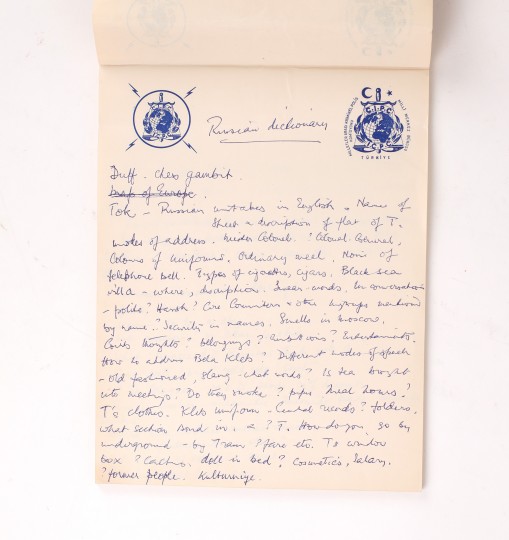 C.I.P.C
C.I.P.C
TÜRKİYE
Russian dictionary
Duff - chess gambit.
Map of Europe.
Tok - Russian mistakes in English. Name of
Street & description of flat of T.
modes of address. Miss Colonel. ? Colonel General,
Colours of uniforms. Ordinary meal. Noise of
telephone bell. Types of cigarettes, cigars. Black sea
villa - where, description. Swear-words. In conversation
- polite? Harsh? Are Committees & other groups mentioned
by name? Security in names. Smells in Moscow.
thoughts? belongings? Ambitions? Entertainments.
How to address Rosa Klebb? Different modes of speech
- old fashioned, slang - what words? Is tea brought
into meetings? Do they smoke? pipes. Meal hours?
T's clothes. Klebs uniform - Central records? folders,
what section Bond in, & ? T. How do you go by
underground - by Tram? fare etc. T's window
box? Cactus. doll in bed? Cosmetics, Salary.
? former people. Kulturniye.